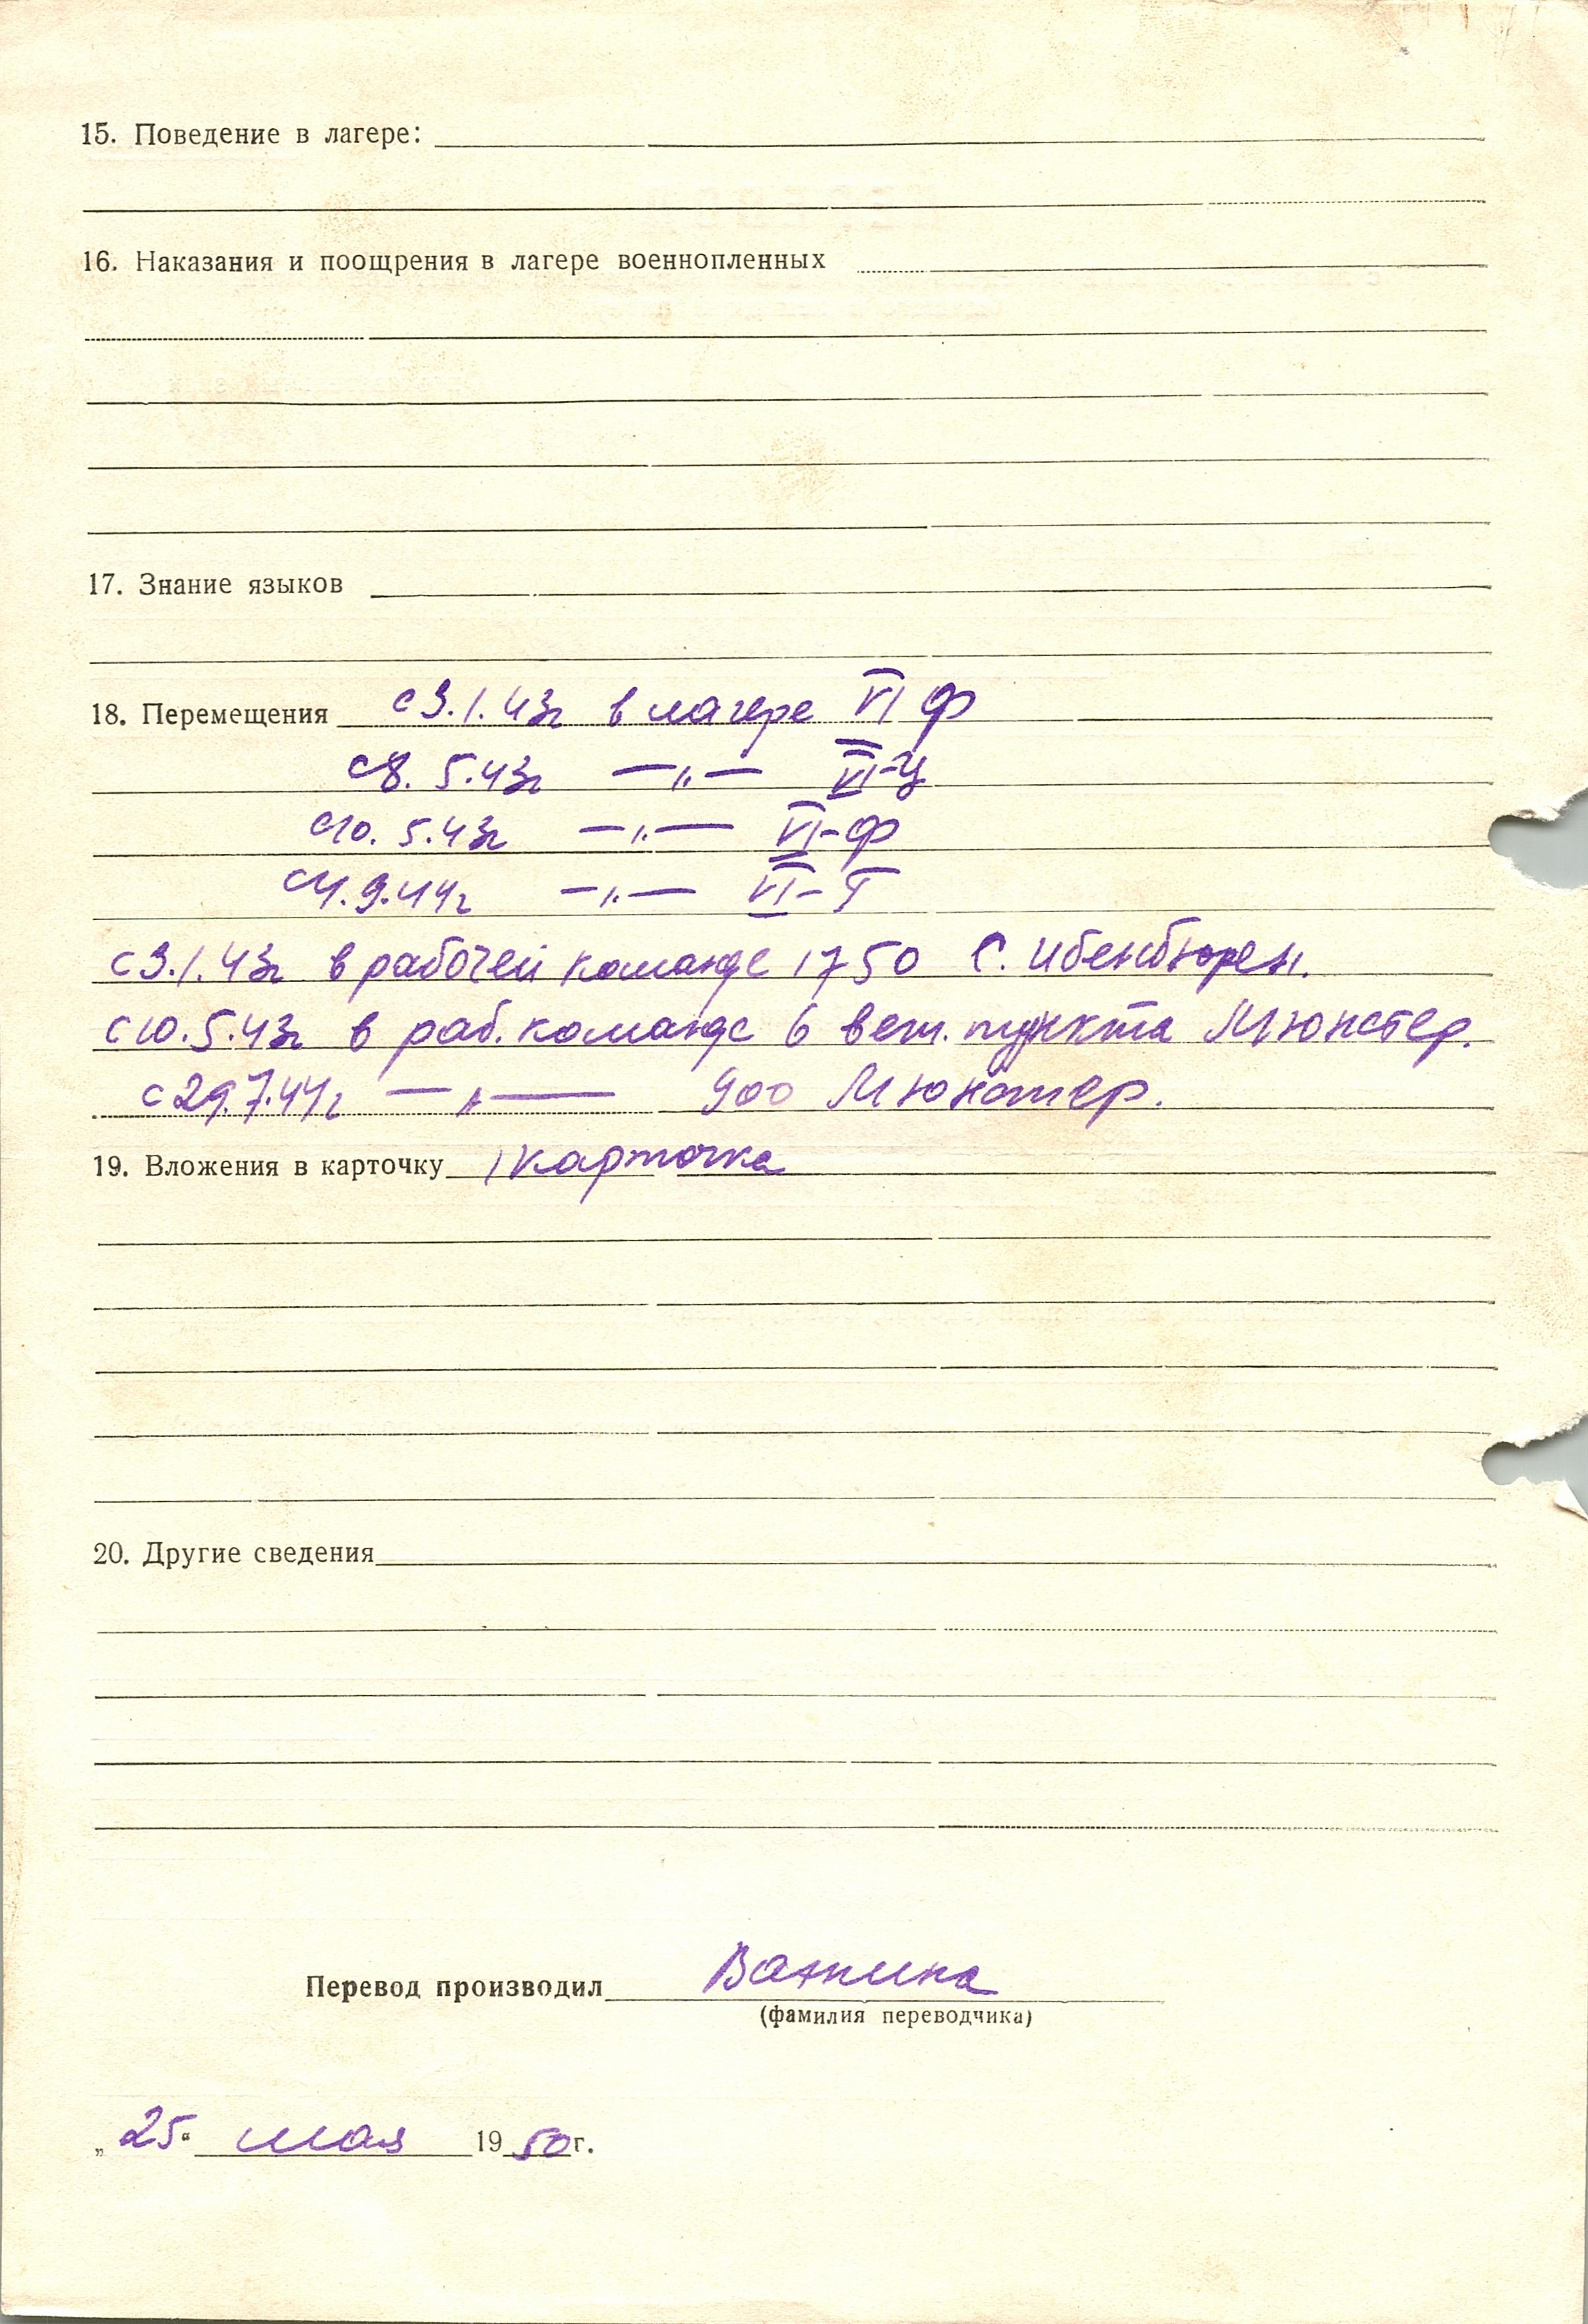 15. Поведение в лагере:
16. Наказания и поощрения в лагере военнопленных
17. Знание языков
18. Перемещения с 3.1.43г в лагере VI Ф
с 8.5.43г —„— VI-Ц
с 10.5.43г —„— VI-Ф
с 4.9.44г —„— VI-Т
с 3.1.43г в рабочей команде 1750 С. Ибенбюрен.
с 10.5.43г в раб. команде 6 вет. пункта Мюнстер.
с 29.7.44г —„— 900 Мюнстер.
19. Вложения в карточку 1 карточка
20. Другие сведения
Перевод производил Важина
(фамилия переводчика)
„25“ мая 1950г.